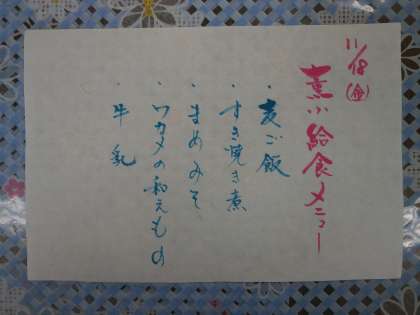 11/18(金)
裏小給食メニュー
・麦ご飯
・すき焼き煮
・まめみそ
・ワカメの和えもの
・牛乳